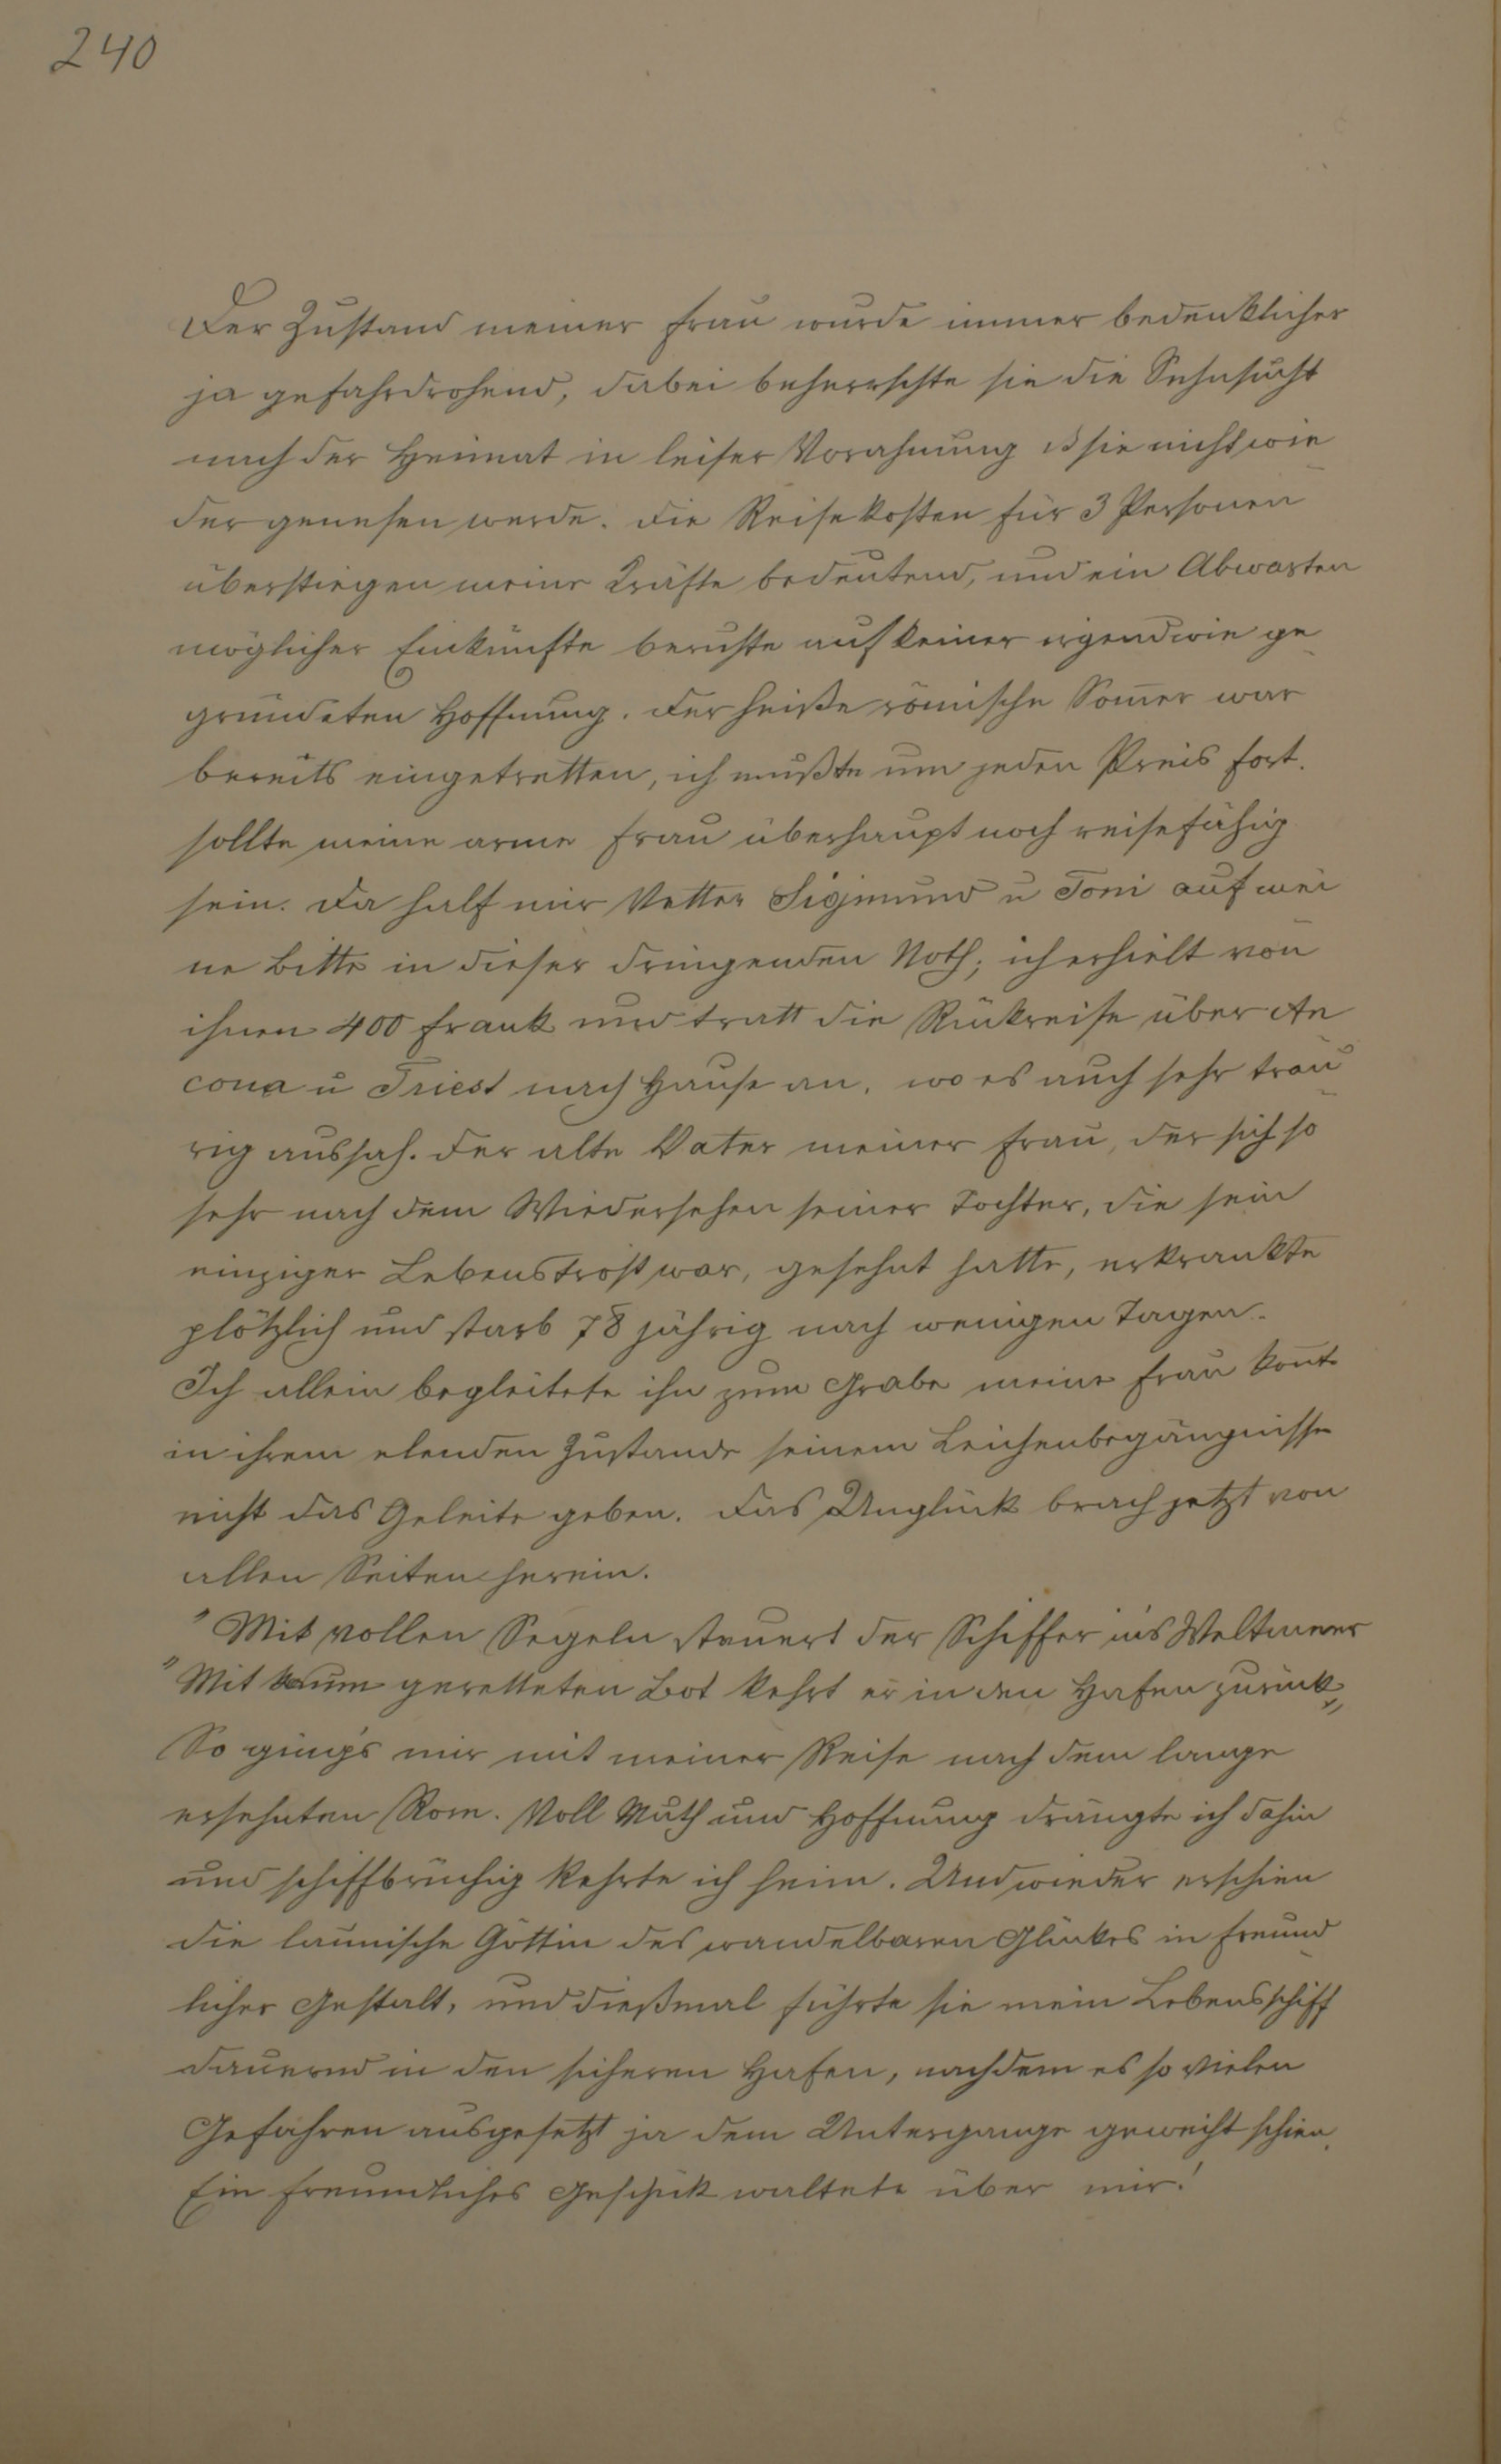 240
Der Zustand meiner Frau wurde immer bedenklicher
ja gefahrdrohend, dabei beherrschte sie die Sehnsucht
nach der Heimat in leiser Vorahnung ß sie nicht wie
der genesen werde. Die Reisekosten für 3 Personen
überstiegen meine Kräfte bedeutend, und ein Abwarten
möglicher Einkünfte beruhte auf keiner irgendwie ge
gründeten Hoffnung. Der heiße römische Som̄er war
bereits eingetretten, ich mußte um jeden Preis fort.
sollte meine arme Frau überhaupt noch reisefähig
sein. Da half mir Vetter Sigmund u Toni auf mei
ne Bitte in dieser dringenden Noth; ich erhielt von
ihnen 400 Frank und tratt die Rükreise über An
cona u Triest nach Hause an, wo es auch sehr trau
rig aussah. Der alte Vater meiner Frau, der sich so
sehr nach dem Wiedersehen seiner Tochter, die sein
einziger Lebenstrost war, gesehnt hatte, erkrankte
plötzlich und starb 78 jährig nach wenigen Tagen.
Ich allein begleitete ihn zum Grabe meine Frau kon̄te
in ihrem elenden Zustande seinem Leichenbegängnisse
nicht das Geleite geben. Das Unglück brach jetzt von
allen Seiten herein.
"Mit vollen Segeln steuert der Schiffer ins Weltmeer
"Mit kaum geretteten Bot kehrt er in den Hafen zurück"
So ging's mir mit meiner Reise nach dem lange
ersehnten Rom. Voll Muth und Hoffnung drängte ich dahin
und schiffbrüchig kehrte ich heim. Und wieder erschien
die launische Göttin des wandelbaren Glückes in freund
licher Gestalt, und dießmal führte sie mein Lebensschiff
dauernd in den sicheren Hafen, nachdem es so vielen
Gefahren ausgesetzt ja dem Untergange geweiht schien.
Ein freundliches Geschick waltete über mir!